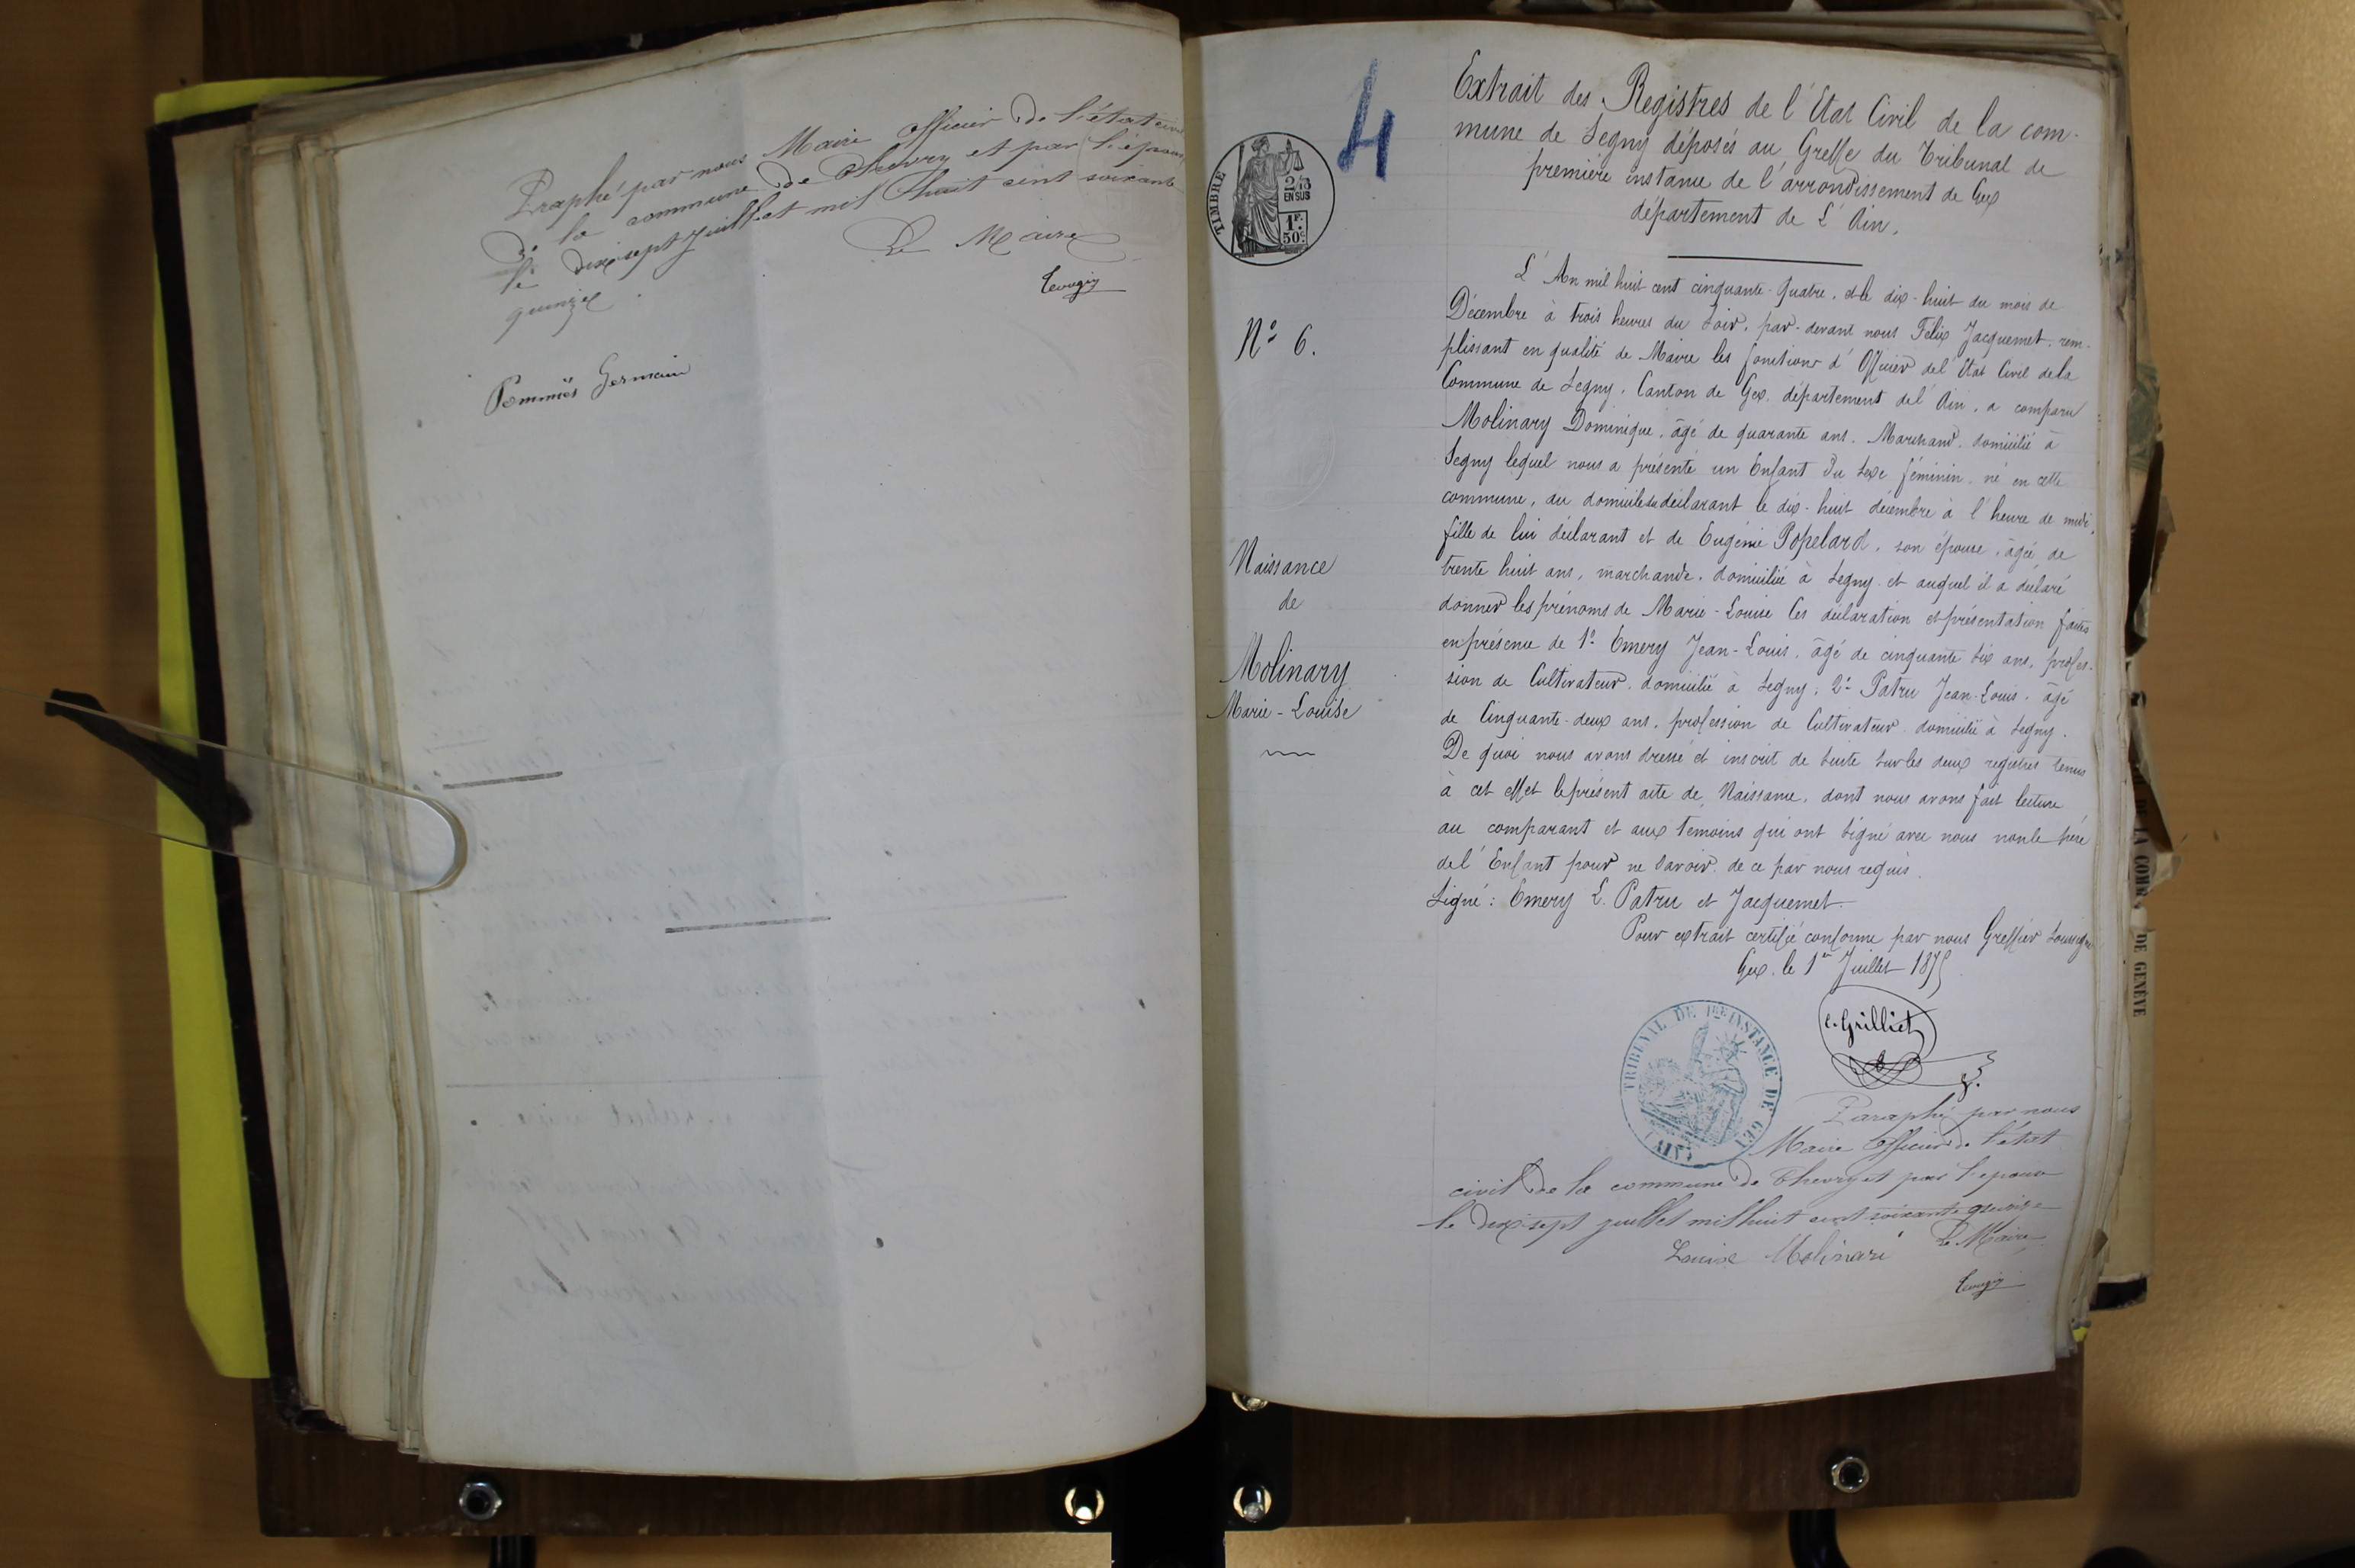 Praphé par nous Maire officier de l'état civil
de la commune de Chevry et par l'époux
le dix sept Juillet mil huit cent soixante
quinze
Le Maire
Pommiès Germain
4
TIMBRE
2/10
EN SUS
1F.
50C
Extrait des Registres de l'Etat Civil de la com-
mune de Segny déposés au Greffe du Tribunal de
première instance de l'arrondissement de Gex
département de L'Ain.
L'An mil huit cent cinquante-quatre, et le dix-huit du mois de
Décembre à trois heures du soir, par-devant nous Félix Jacquemet, rem-
N° 6.
plissant en qualité de Maire les fonctions d'Officier de l'Etat Civil de la
Commune de Segny, Canton de Gex, département de l'Ain, a comparu
Molinary Dominique, âgé de quarante ans, Marchand, domicilié à
Segny lequel nous a présenté un Enfant du sexe féminin, né en cette
commune, au domicile du déclarant le dix-huit décembre à l'heure de midi,
fille de lui déclarant et de Eugénie Popelard, son épouse, âgée de
trente huit ans, marchande, domiciliée à Segny et auquel il a déclaré
donner les prénoms de Marie-Louise Ces déclaration et présentation faites
en présence de 1° Emery Jean-Louis, âgé de cinquante six ans, profes-
sion de Cultivateur, domicilié à Segny, 2° Patru Jean-Louis, âgé
de Cinquante-deux ans, profession de Cultivateur, domicilié à Segny.
De quoi nous avons dressé et inscrit de suite sur les deux registres tenus
à cet effet le présent acte de Naissance, dont nous avons fait lecture
au comparant et aux témoins qui ont signé avec nous non le père
de l'Enfant pour ne savoir de ce par nous requis.
Signé: Emery L. Patru et Jacquemet.
Naissance
de
Molinary
Marie-Louise
Pour extrait certifié conforme par nous Greffier soussigné
Gex, le 1er Juillet 1875
TRIBUNAL DE 1RE INSTANCE DE GEX
(AIN)
C. Grilliet
Paraphé par nous
Maire Officier de l'état
civil de la commune de Chevry et par l'epouse
le dix sept juillet mil huit cent soixante quinze
Louise Molinari
Le Maire
DE LA COM
DE GENÈVE